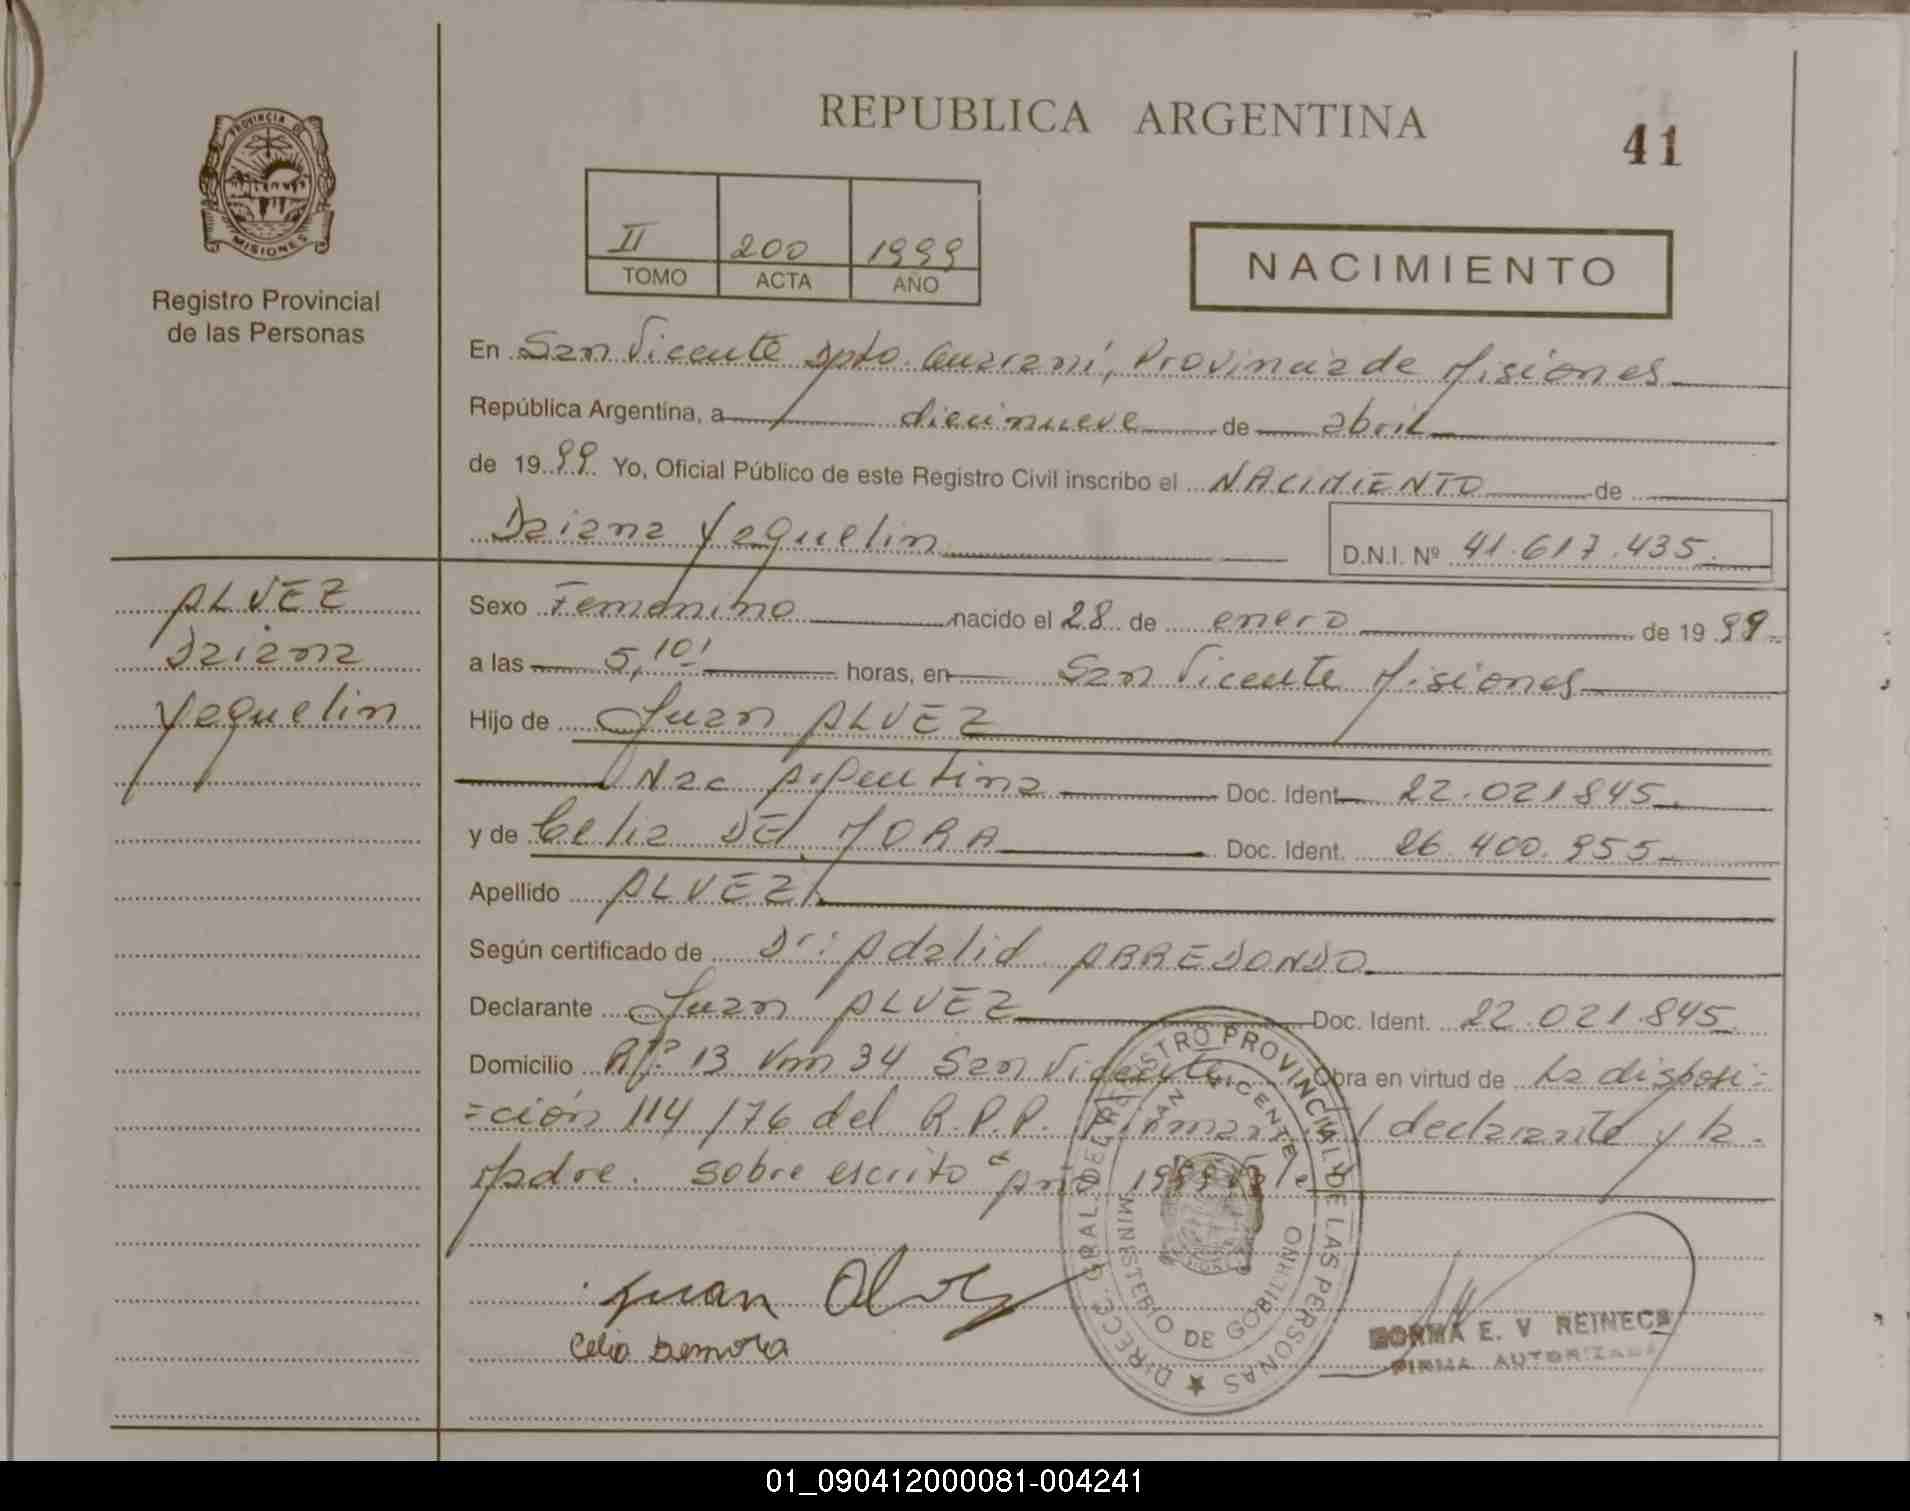 REPUBLICA ARGENTINA
41
PROVINCIA DE
MISIONES
Registro Provincial
de las Personas
II 200 1999
TOMO ACTA AÑO
NACIMIENTO
En San Vicente Dpto. Guaraní, Provincia de Misiones
República Argentina, a diecinueve de abril
de 1999 Yo, Oficial Público de este Registro Civil inscribo el NACIMIENTO de
Daiana Yaquelin
D.N.I. Nº 41.617.435.
ALVEZ
Daiana
Yaquelin
Sexo Femenino nacido el 28 de enero de 1999
a las 5,10' horas, en San Vicente Misiones
Hijo de Juan ALVEZ
Nac Argentina Doc. Ident. 22.021.845
y de Celia DE MORA Doc. Ident. 26.400.955
Apellido ALVEZ
Según certificado de Dr: Adalid ARREDONDO
Declarante Juan ALVEZ Doc. Ident. 22.021.845
Domicilio Km 34 San Vicente Obra en virtud de La disposi=
=ción 114/76 del R.P.P. declarante y la
Madre. Sobre escrito 1999 Vale
Juan Alvez
Celia Demora
DIRECC. GRAL. DEL REGISTRO PROVINCIAL DE LAS PERSONAS
SAN VICENTE
MINISTERIO DE GOBIERNO
NORMA E. V REINECK
FIRMA AUTORIZADA
01_090412000081-004241